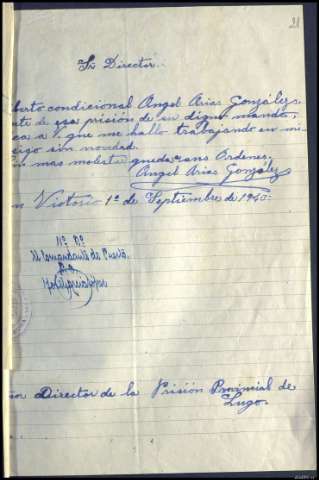 21
Sr Director.
berto condicional Angel Arias González.
nte de esa prisión de su digno mando,
ca a V. que me hallo trabajando en mi
cigo sin novedad.
n mas molesta quedo a sus Ordenes.
Angel Arias González
n Victorio 1º de Septiembre de 1940.
Vº Bº
El Comandante de Puesto.
or Director de la Prisión Provincial de
Lugo.